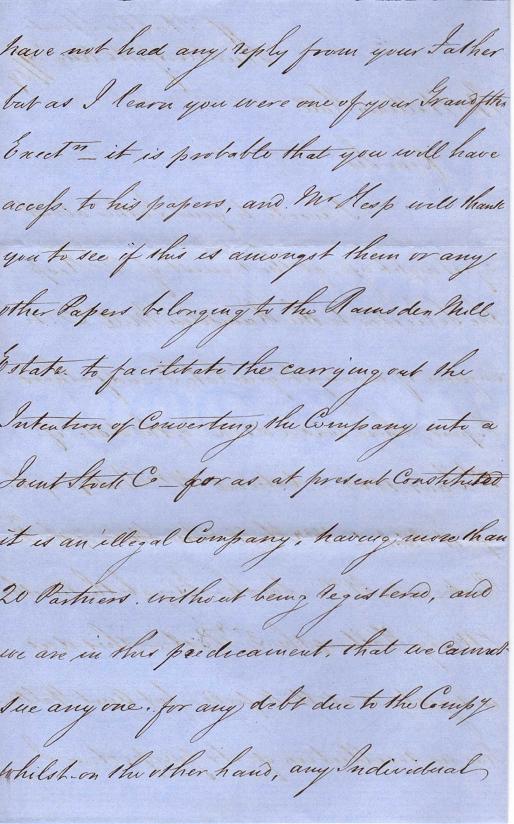 have not had any reply from your Father
but as I learn you were one of your Grandfthrs
Exectrs _ it is probable that you will have
access to his papers, and Mr Hesp will thank
you to see if this is amongst them or any
other Papers belonging to the Ramsden Mill
Estate to facilitate the carrying out the
Intention of Converting the Company into a
Joint Stock Co _ for as at present Constituted
it is an illegal Company, having more than
20 Partners without being registered, and
we are in this predicament, that we cannot
sue any one. for any debt due to the Compy
whilst on the other hand, any Individual